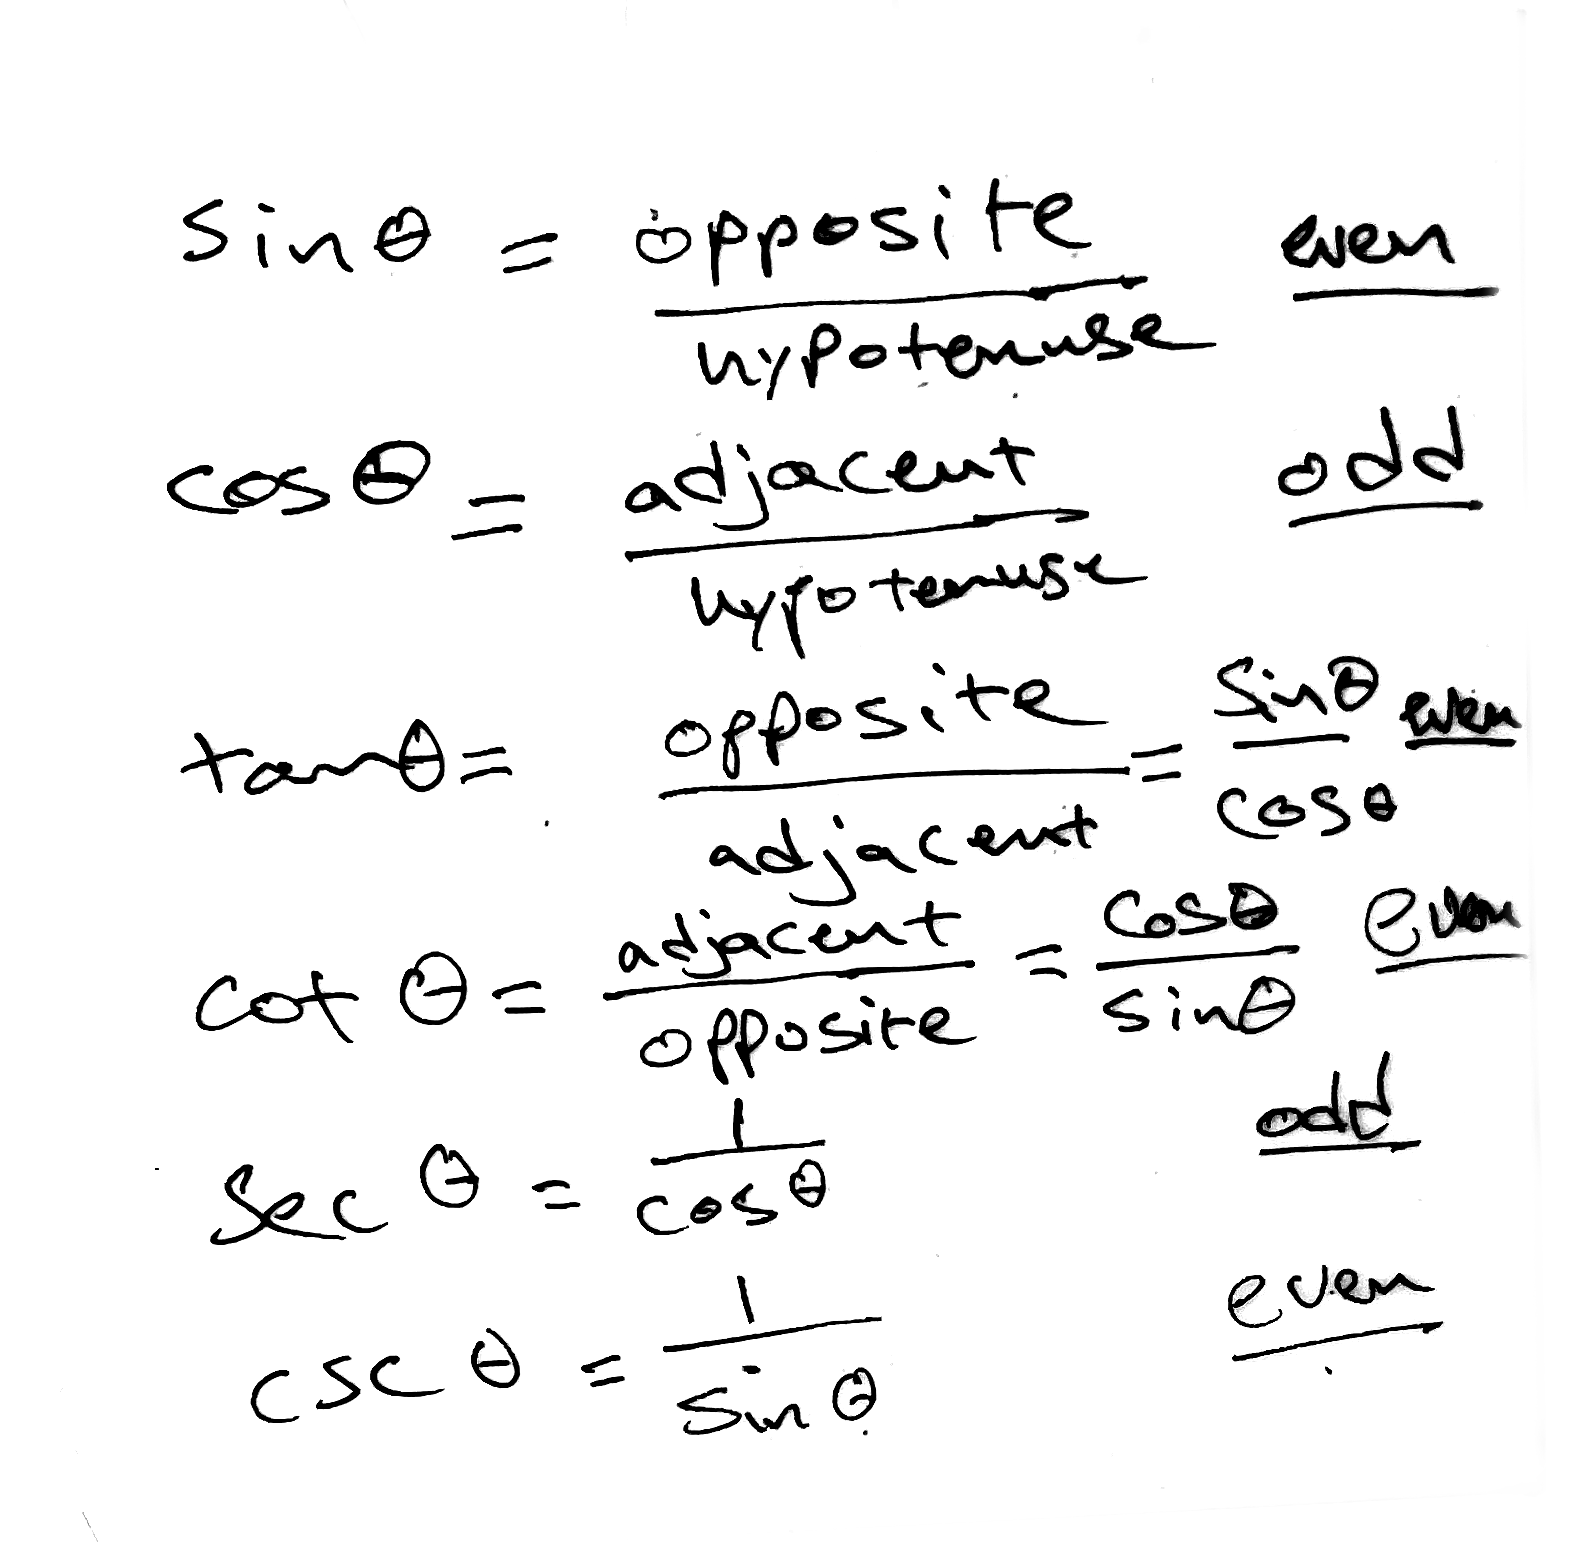 sinθ = opposite/hypotenuse even
cosθ = adjacent/hypotenuse odd
tanθ = opposite/adjacent = sinθ/cosθ even
cot θ = adjacent/opposite = cosθ/sinθ even
sec θ = 1/cosθ odd
csc θ = 1/sin θ even